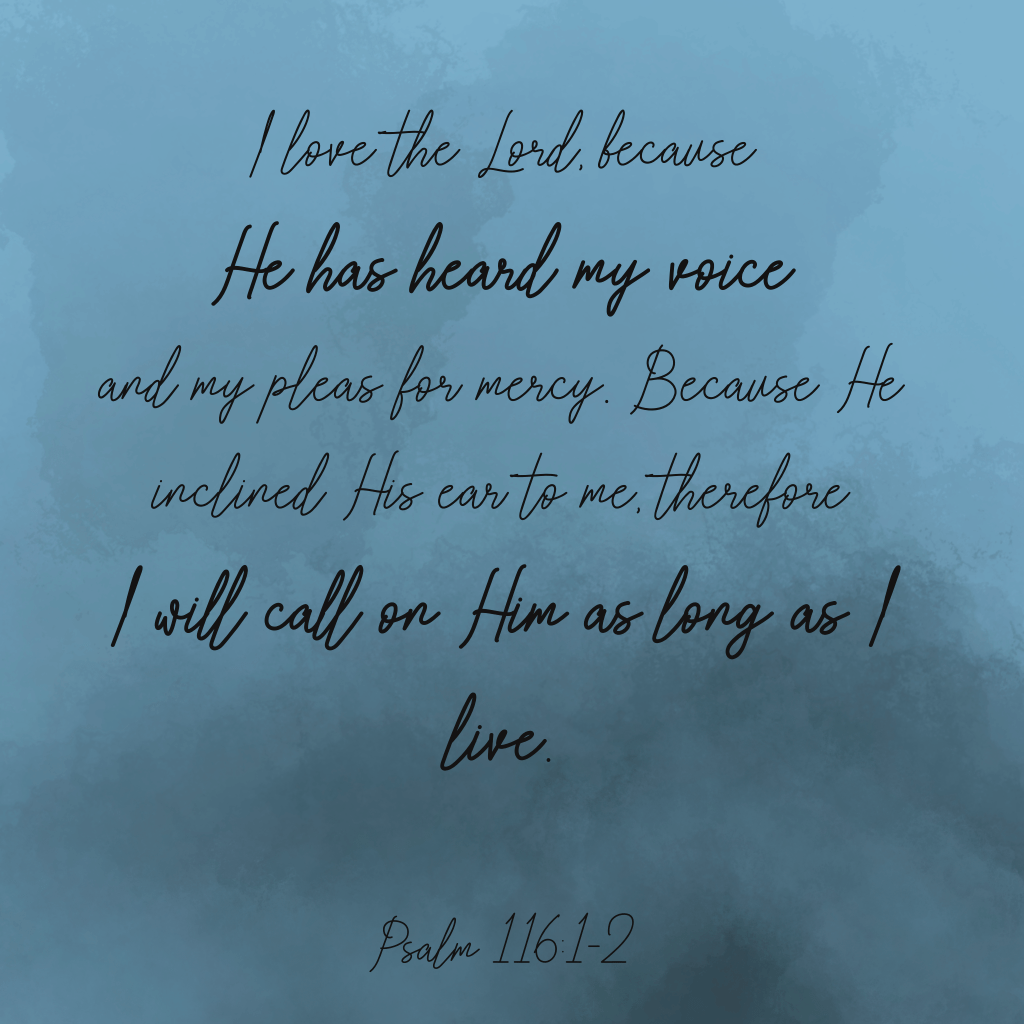 I love the Lord, because
He has heard my voice
and my pleas for mercy. Because He
inclined His ear to me, therefore
I will call on Him as long as I
live.
Psalm 116:1-2